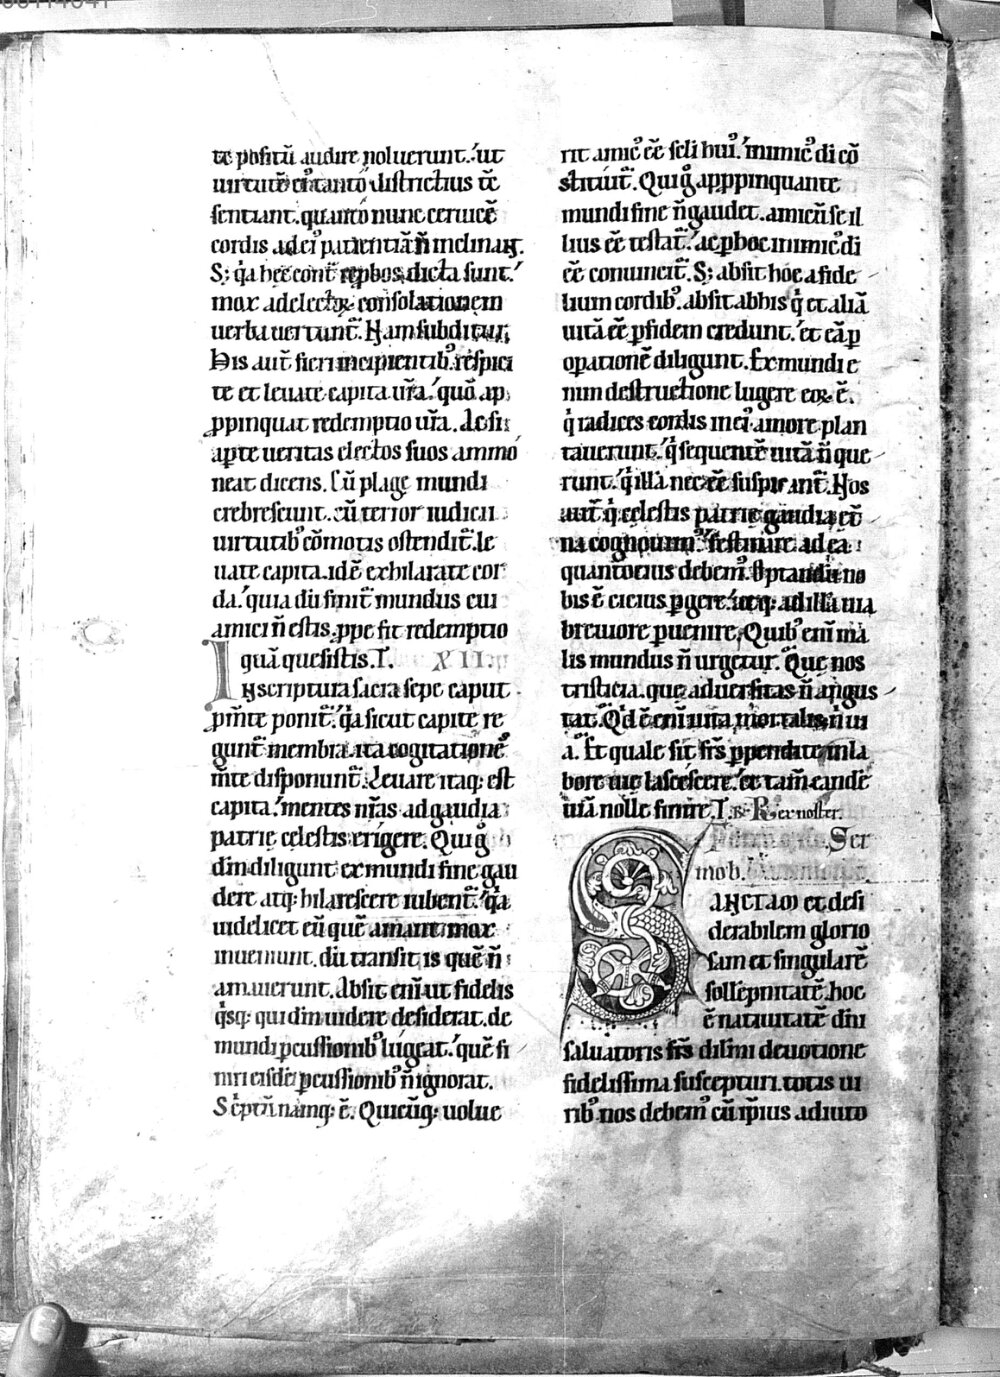 te positū audire noluerunt. ut
uirtutē ei tanto districtius tc̄
sentiant. quanto nunc ceruicē
cordis ad ei patientiā n̄ inclinant.
S; q̇a hęc cont̄ reꝓbos dicta sunt.
mox ad electoꝝ consolationem
uerba uertunt̄. Nam subditur;
His aut̄ fieri incipientib᷒ respici
te et leuate capita ur̄a. quō ap
ꝓpinquat redemptio ur̄a. Ac si
aꝑte ueritas electos suos ammo
neat dicens. Cū plagę mundi
crebrescunt. cū terror iudicii
uirtutib᷒ cōmotis ostendit̄. le
uate capita. idē exhilarate cor
da. quia dū finit̄ mundus cui
amici n̄ estis. ꝓpe fit redemptio
quā quesistis. T. XII.
IN scriptura sacra sepe caput
ꝑ m̄te ponit̄. q̇a sicut capite re
gunt̄ membra. ita cogitationeˢ
m̄te disponunt̄. Leuare itaq; est
capita. mentes nr̄as ad gaudia
patrię cęlestis erigere. Qui gͦ
dm̄ diligunt ex mundi fine gau
dere atq; hilarescere iubent̄. q̇a
uidelicet eū quē amant mox
inueniunt. dū transit is quē n̄
amauerunt. Absit eni ut fidelis
q̇sq; qui dm̄ uidere desiderat. de
mundi ꝑcussionib᷒ lugeat. quē fi
niri eisdē ꝑcussionib᷒ n̄ ignorat.
Sc̄ptū namq; ē. Quicūq; uolue
rit amic᷒ ēē sc̄li hui᷒. inimic᷒ di cō
stituit̄. Qui gͦ apꝓpinquante
mundi fine n̄ gaudet. amicū se il
lius ēē testat̄. ac ꝑ hoc inimic᷒ di
ēē conuincit̄. S; absit hoc a fide
lium cordib᷒. absit ab his q̇ et aliā
uitā ēē ꝑ fidem credunt. et eā ꝑ
oꝑationē diligunt. Ex mundi e
nim destructione lugere eoꝝ ē.
q̇ radices cordis in ei᷒ amore plan
tauerunt. q̇ sequentē uitā n̄ que
runt. q̇ illā nec ēē suspicant̄. Nos
aut̄ q̇ cęlestis patrię gaudia ęt̄
na cognouim᷒. festinare ad ea
quantocius debem᷒. Optandū no
bis ē citius ꝑgere. atq; ad illā uia
breuiore ꝑuenire. Quib᷒ eni ma
lis mundus n̄ urgetur. Que nos
tristicia. que aduersitas n̄ angus
tat. Qd ē eni uita mortalis. n̄ ui
a. Et quale sit frs̄ ꝑpendite in la
bore uię lascescere. et tam̄ eandē
uiā nolle finire. T. R. Rex noster.
Ser
mo b.
SANCTAM et desi
derabilem glorio
sam et singularē
sollēpnitatē. hoc
ē natiuitatē dn̄i
saluatoris frs̄ dil̄mi deuotione
fidelissima suscepturi. totis ui
rib᷒ nos debem᷒ cū ip̄ius adiuto